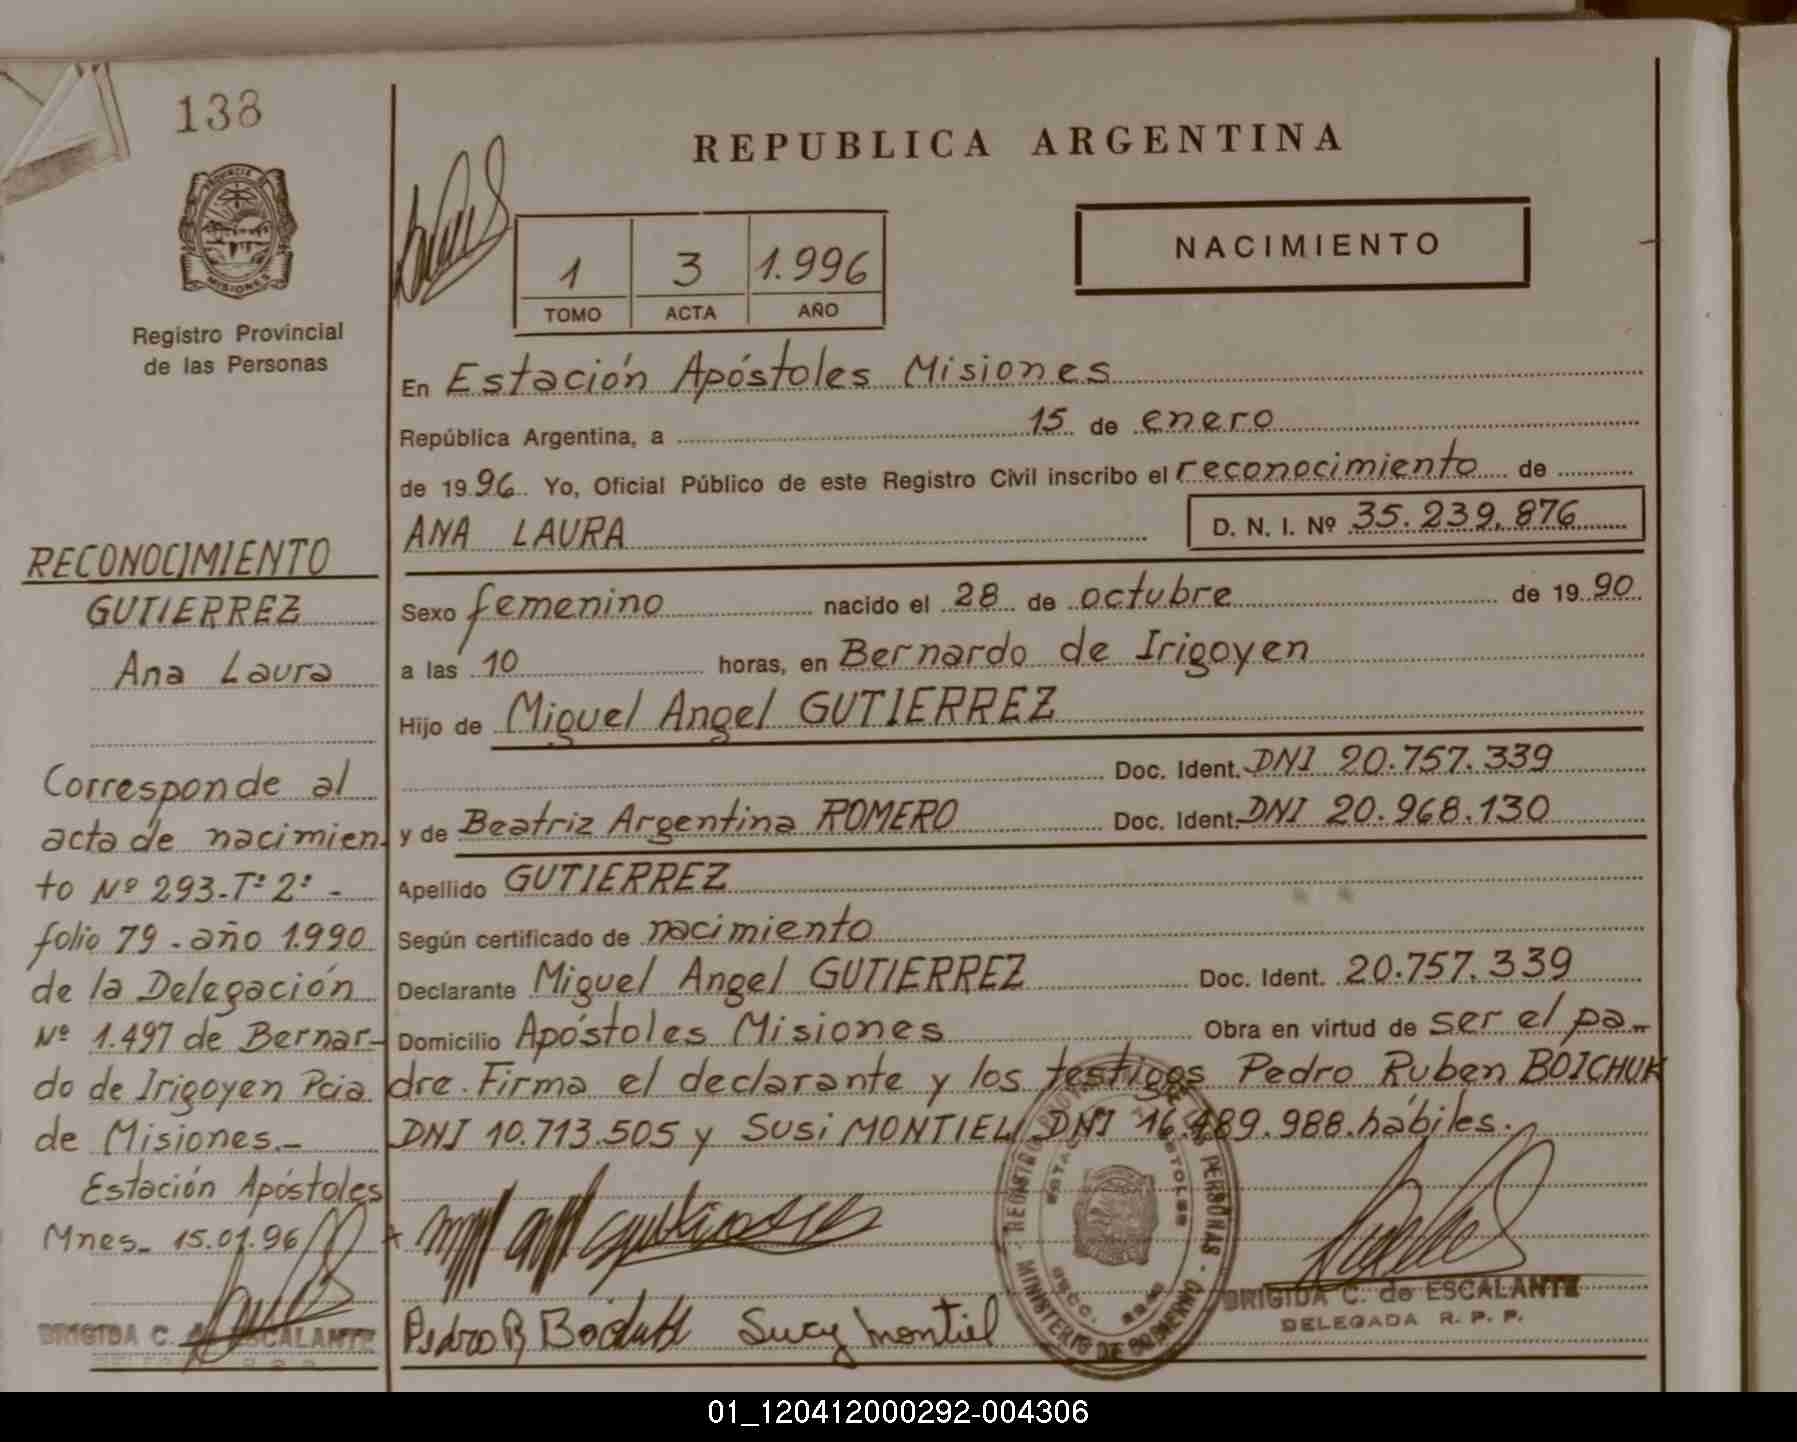 138
PROVINCIA DE
MISIONES
Registro Provincial
de las Personas
RECONOCIMIENTO
GUTIERREZ
Ana Laura
Corresponde al
acta de nacimien-
to Nº 293-Tº 2º -
folio 79 - año 1.990
de la Delegación
Nº 1.497 de Bernar-
do de Irigoyen Pcia.
de Misiones.-
Estación Apóstoles
Mnes.- 15.01.96
BRIGIDA C. de ESCALANTE
REPUBLICA ARGENTINA
NACIMIENTO
1 3 1.996
TOMO ACTA AÑO
En Estación Apóstoles Misiones
República Argentina, a 15 de enero
de 1996. Yo, Oficial Público de este Registro Civil inscribo el reconocimiento de
ANA LAURA D. N. I. Nº 35.239.876
Sexo femenino nacido el 28 de octubre de 1990
a las 10 horas, en Bernardo de Irigoyen
Hijo de Miguel Angel GUTIERREZ
Doc. Ident. DNI 20.757.339
y de Beatriz Argentina ROMERO Doc. Ident. DNI 20.968.130
Apellido GUTIERREZ
Según certificado de nacimiento
Declarante Miguel Angel GUTIERREZ Doc. Ident. 20.757.339
Domicilio Apóstoles Misiones Obra en virtud de ser el pa-
dre. Firma el declarante y los testigos Pedro Ruben BOICHUK
DNI 10.713.505 y Susi MONTIEL DNI 16.489.988.hábiles.
Pedro R Sucy Montiel
MINISTERIO DE GOBIERNO
BRIGIDA C. de ESCALANTE
DELEGADA R. P. P.
01_120412000292-004306